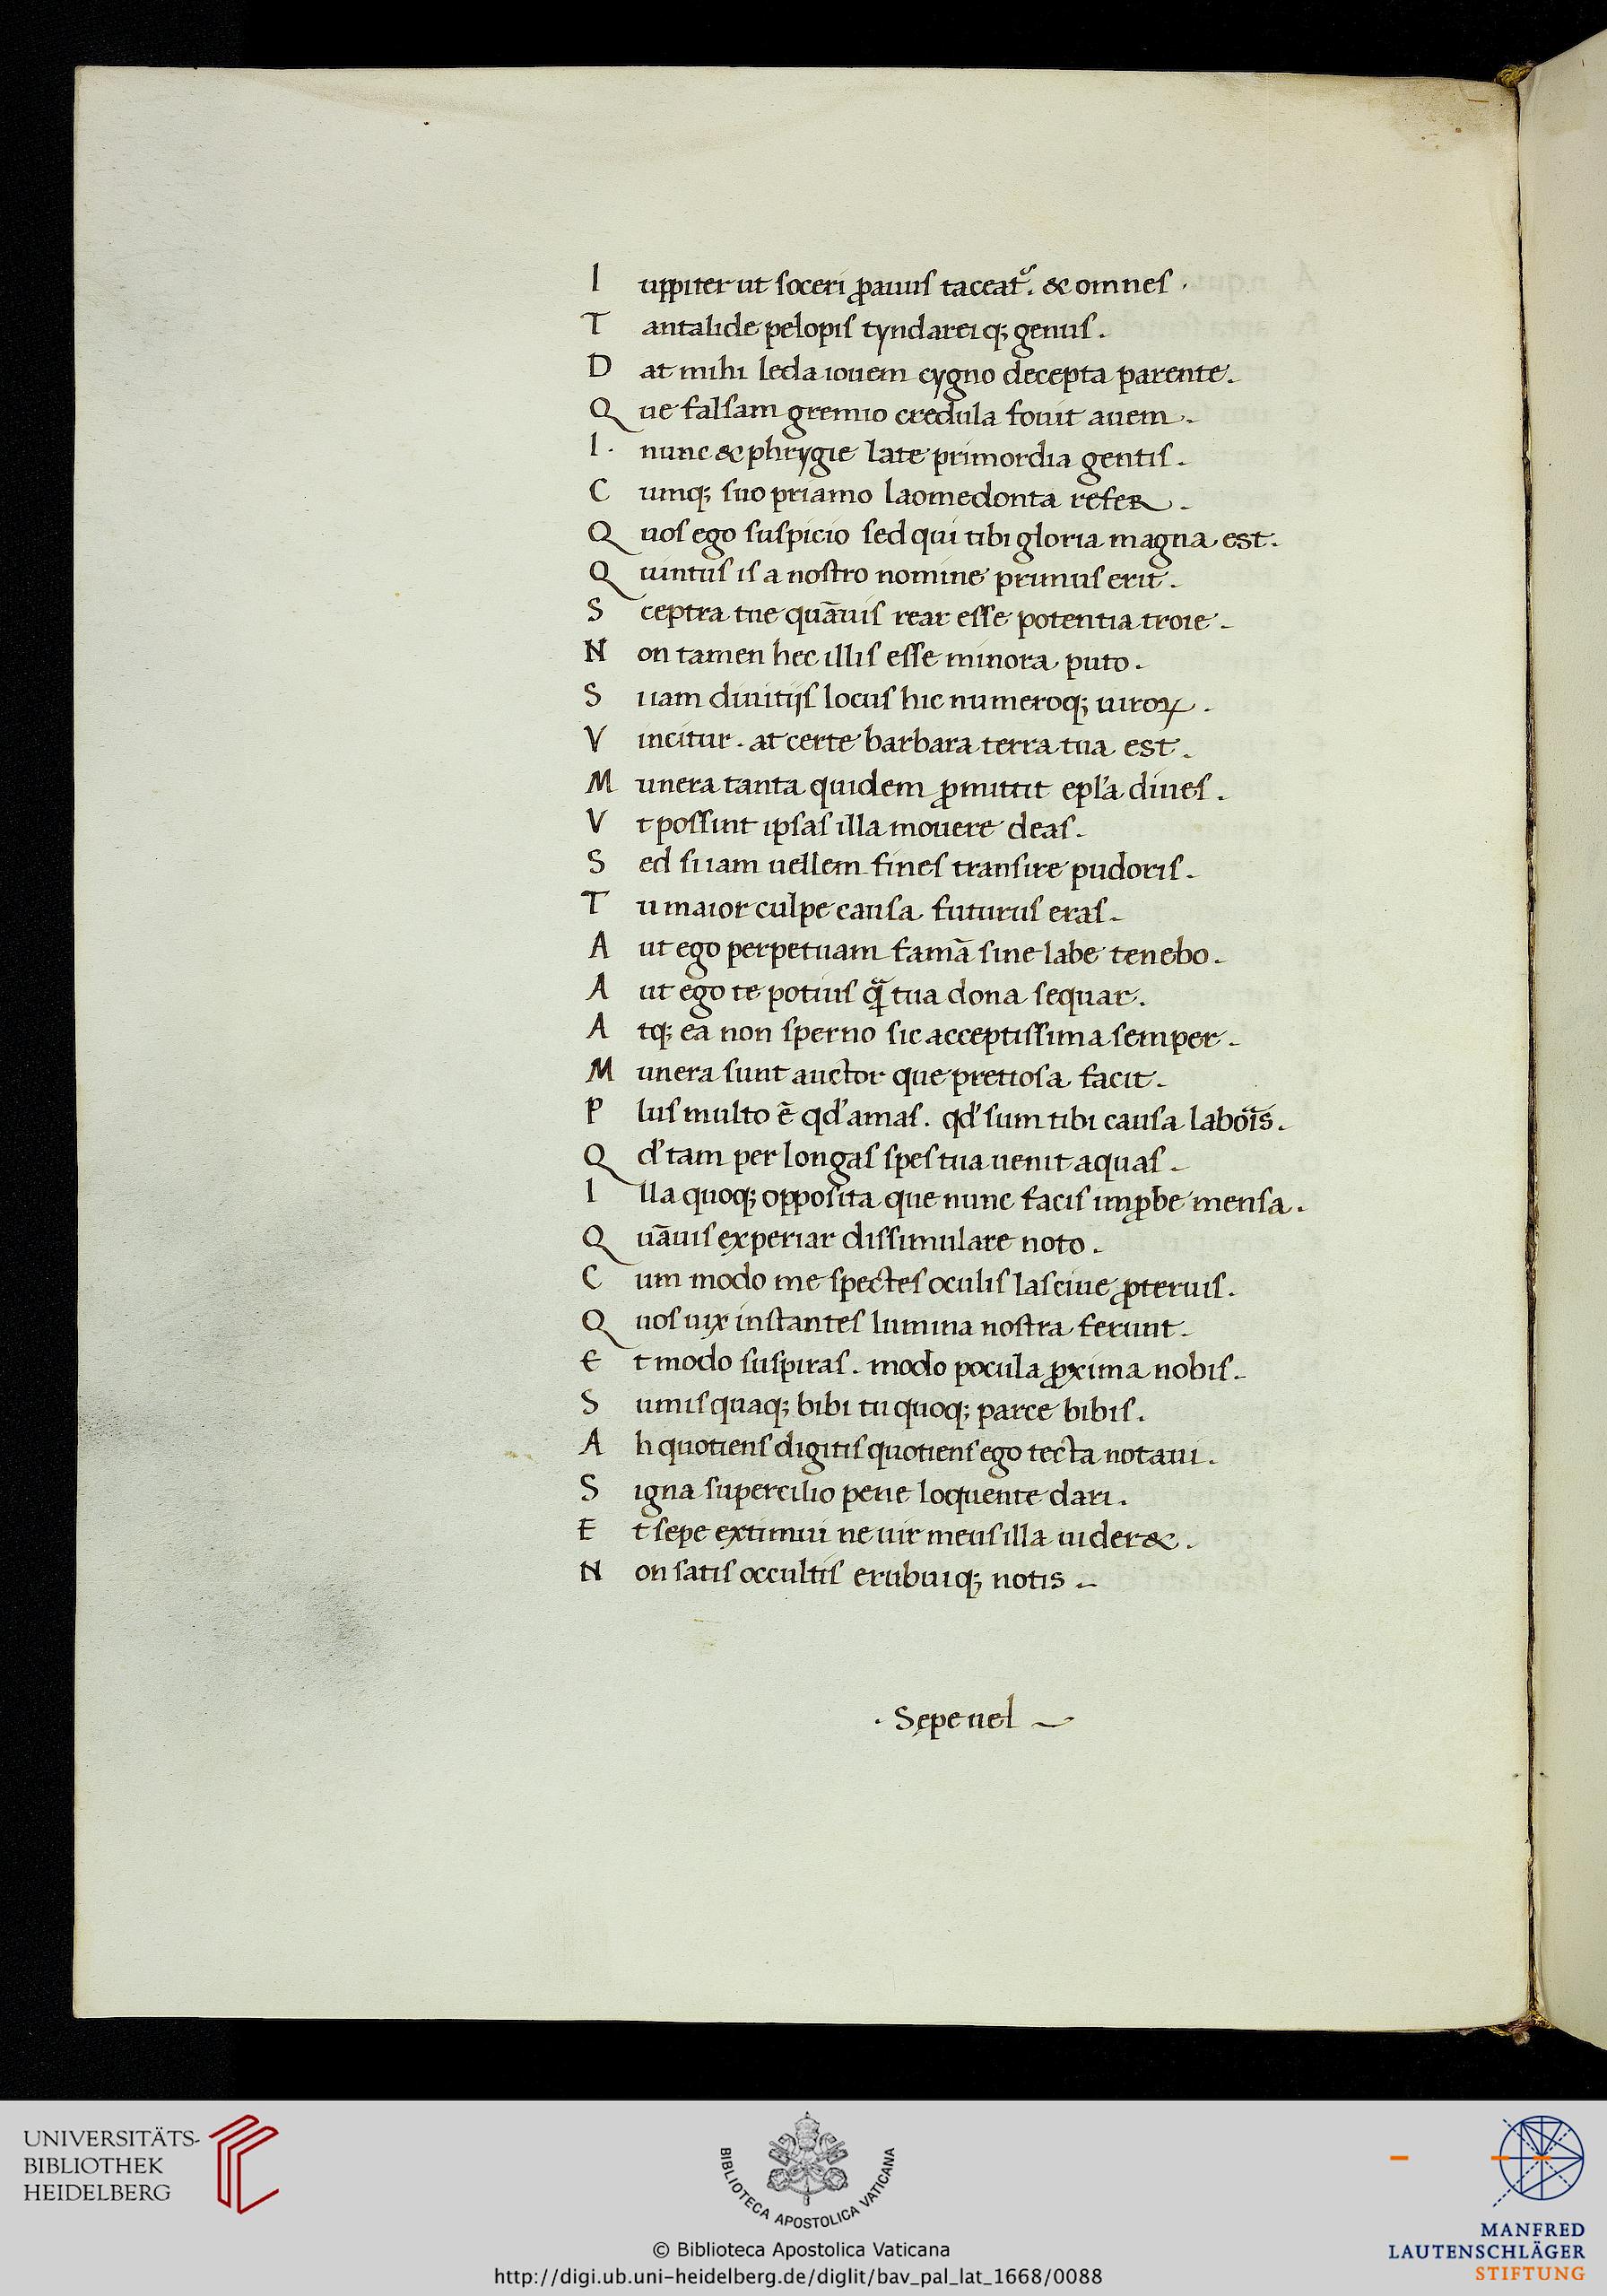 I uppiter ut soceri ꝓauus taceatᷣ. & omnes .
T antalide pelopis tyndareiq; genus .
D at mihi leda iouem cygno decepta parente .
Q ue falsam gremio credula fouit auem .
I . nunc & phrygie late primordia gentis .
C umq; suo priamo laomedonta refer .
Q uos ego suspicio sed qui tibi gloria magna est .
Q uintus is a nostro nomine primus erit .
S ceptra tue quāuis rear esse potentia troie .
N on tamen hec illis esse minora puto .
S i iam diuitijs locus hic numeroq; uiroꝝ .
V incitur . at certe barbara terra tua est .
M unera tanta quidem ꝓmittit epl'a diues .
V t possint ipsas illa mouere deas .
S ed si iam uellem fines transire pudoris .
T u maior culpe causa futurus eras .
A ut ego perpetuam famā sine labe tenebo .
A ut ego te potius ꝗ̃ tua dona sequar .
A tq; ea non sperno sic acceptissima semper .
M unera sunt auctor que pretiosa facit .
P lus multo ē qd' amas . qd' sum tibi causa laboīs .
Q d' tam per longas spes tua uenit aquas .
I lla quoq; opposita que nunc facis imꝓbe mensa .
Q uāuis experiar dissimulare noto .
C um modo me spectes oculis lasciue ꝓteruis .
Q uos uix instantes lumina nostra ferunt .
E t modo suspiras . modo pocula ꝓxima nobis .
S umis quaq; bibi tu quoq; parce bibis .
A h quotiens digitis quotiens ego tecta notaui .
S igna supercilio pene loquente dari .
E t sepe extimui ne uir meus illa uider& .
N on satis occultis erubuiq; notis .
. Sepe uel
UNIVERSITÄTS-
BIBLIOTHEK
HEIDELBERG
BIBLIOTECA APOSTOLICA VATICANA
© Biblioteca Apostolica Vaticana
http://digi.ub.uni-heidelberg.de/diglit/bav_pal_lat_1668/0088
MANFRED
LAUTENSCHLÄGER
STIFTUNG